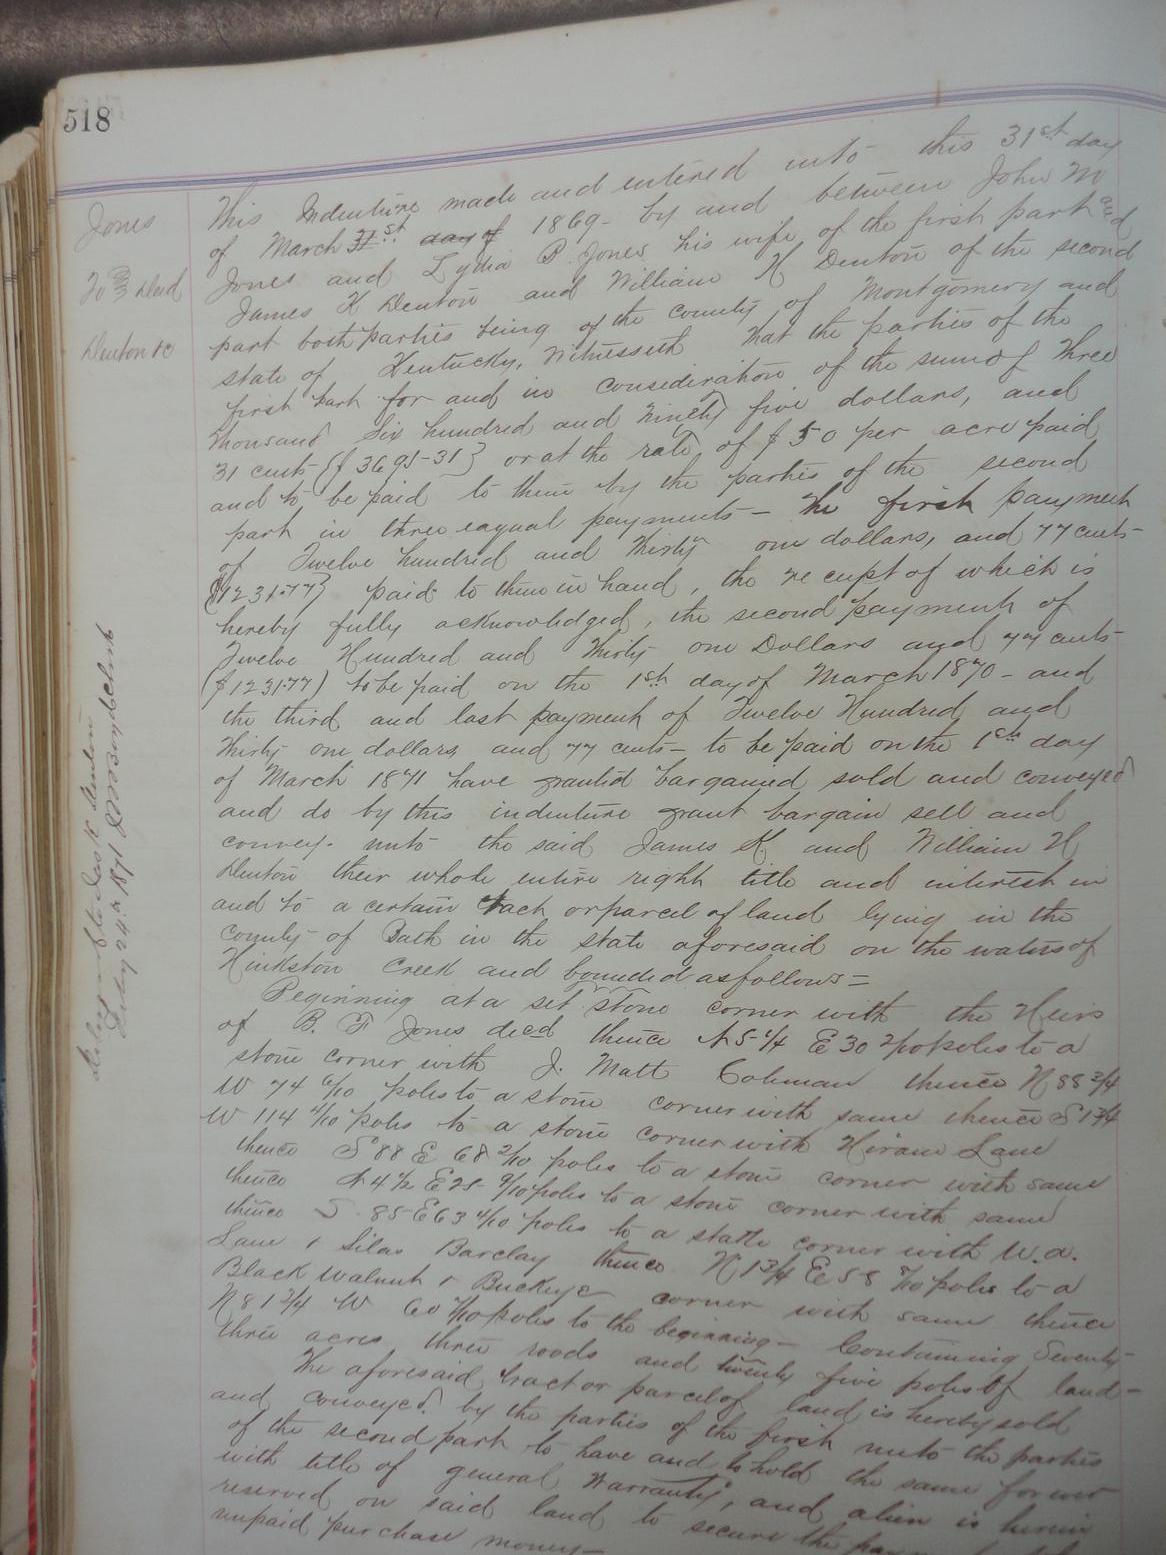 518
Jones
To Deed
Denton &c
This Indenture made and entered into this 31st day
of March 31st day of 1869 - by and between John M
Jones and Lydia B. Jones his wife of the first part and
James K Denton and William H Denton of the second
part both parties being of the county of Montgomery and
state of Kentucky, Witnesseth That the parties of the
first part for and in consideration of the sum of Three
Thousand Six hundred and Ninety five dollars, and
31 cents {$3695-31} or at the rate of $50 per acre paid
and to be paid to them by the parties of the second
part in three eaqual payments - The first payment
of Twelve hundred and Thirty one dollars, and 77 cents-
{$1231.77} paid to them in hand, the receipt of which is
hereby fully acknowledged, the second payment of
Twelve Hundred and Thirty one Dollars and 77 cents-
($1231.77) to be paid on the 1st day of March 1870 - and
the third and last payment of Twelve Hundred and
Thirty one dollars and 77 cents - to be paid on the 1st day
of March 1871 have granted bargained sold and conveyed
and do by this indenture grant bargain sell and
convey - unto the said James K and William H
Denton their whole entire right title and interest in
and to a certain tract or parcel of land lying in the
county of Bath in the state aforesaid on the waters of
Hinkston Creek and bounded as follows =
Beginning at a set stone corner with the Heirs
of B. F Jones decd thence N 5 1/4 E 30 poles to a
stone corner with J. Matt Coleman thence N 88 3/4
W 74 6/10 poles to a stone corner with same thence S 1 3/4
W 114 4/10 poles to a stone corner with Hiram Lane
thence S 88 E 68 2/10 poles to a stone corner with same
thence N 4 1/2 E 25 9/10 poles to a stone corner with same
thence S. 85 E 63 4/10 poles to a corner with W. a.
Lane & Silas Barclay thence N 1 3/4 E 58 7/10 poles to a
Black walnut & Buckeye corner with same thence
N 81 3/4 W 60 poles to the beginning - Containing Seventy-
three acres three roods and twenty five poles of land -
The aforesaid tract or parcel of land is hereby sold
and conveyed by the parties of the first unto the parties
of the second part to have and to hold the same forever
with title of general Warranty, and a lien is herein
reserved on said land to secure the
unpaid purchase money -
Jas K Denton
24th 1871